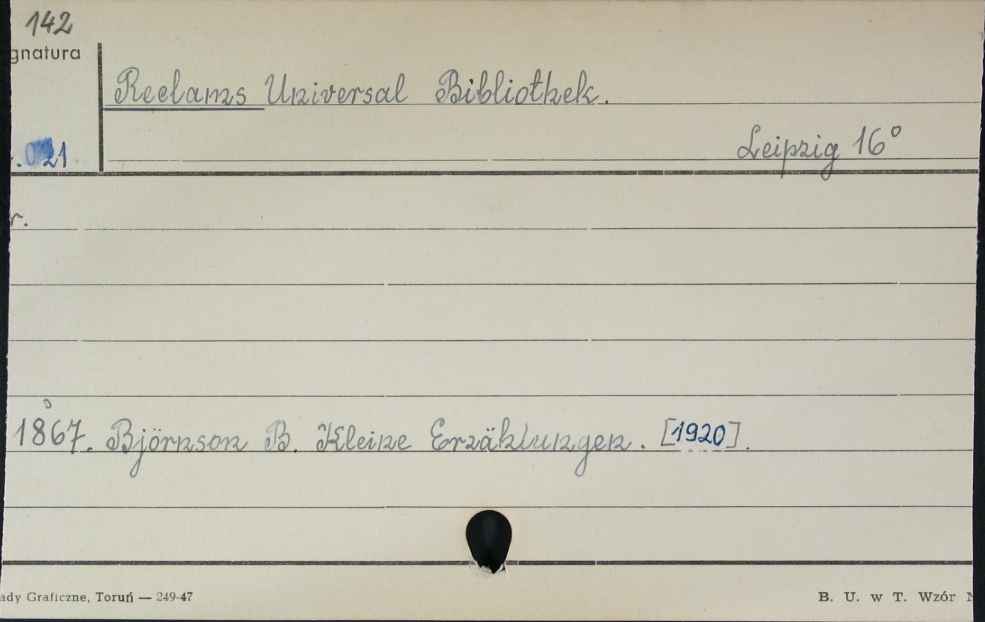 142
gnatura
Reclams Universal Bibliothek.
Leipzig 16°
21
r.
1867. Björnson B. Kleine Erzählungen. [1920].
ady Graficzne, Toruń — 249-47
B. U. w T. Wzór